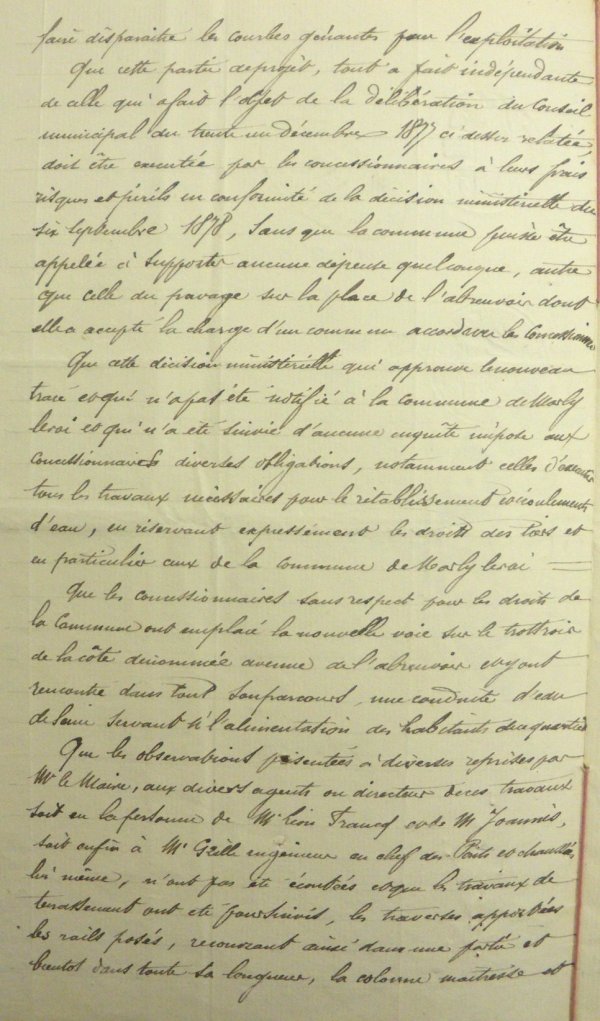 faire disparaitre les courbes gênantes pour l'exploitation
Que cette partie de projet, tout a fait indépendante
de celle qui a fait l'objet de la délibération du Conseil
municipal du trente un décembre 1877 ci dessus relatée,
doit être executée par les concessionnaires à leurs frais
risques et périls en conformité de la décision ministérielle du
six Septembre 1878, Sans que la commune puisse être
appelée à Supporter aucune dépense quelconque, autre
que celle du pavage sur la place de l'abreuvoir dont
elle a accepté la charge d'un commun accord avec les Concessionnaires
Que cette décision ministérielle qui approuve le nouveau
tracé et qui n'a pas été notifié à la Commune de Marly
leroi et qui n'a été suivie d'aucune enquête impose aux
Concessionnaires diverses obligations, notamment celles d'executer
tous les travaux nécessaires pour le rétablissement et écoulements
d'eau, en réservant expressément les droits des tiers et
en particulier ceux de la Commune de Marly leroi
Que les concessionnaires sans respect pour les droits de
la Commune ont emplacé la nouvelle voie sur le trottoir
de la côte dénommée avenue de l'abreuvoir et y ont
rencontré dans tout son parcours, une conduite d'eau
de Seine servant à l'alimentation des habitants du quartier
Que les observations présentées à diverses reprises par
Mr le Maire, aux divers agents ou directeur de ces travaux
soit en la personne de Mr Léon Francq et de M Joannis,
soit enfin à Mr Grille ingénieur en chef des Ponts et chaussées
lui même, n'ont pas été écoutées et que les travaux de
terrassement ont été poursuivis, les traverses apportées
les rails posés, recouvrant ainsi dans une partie et
bientot dans toute sa longueur, la colonne maitresse et